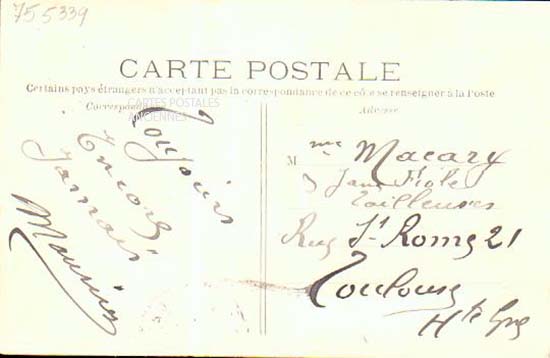 755339
CARTE POSTALE
Certains pays étrangers n'acceptant pas la correspondance de ce côté se renseigner à la Poste
Correspondance
Adresse
CARTES POSTALES
ANCIENNES
Toujours
Encore
Jamais
Maurice
M me Macary
Tailleuses
Rue St Rome 21
Toulouse
Hte Gne